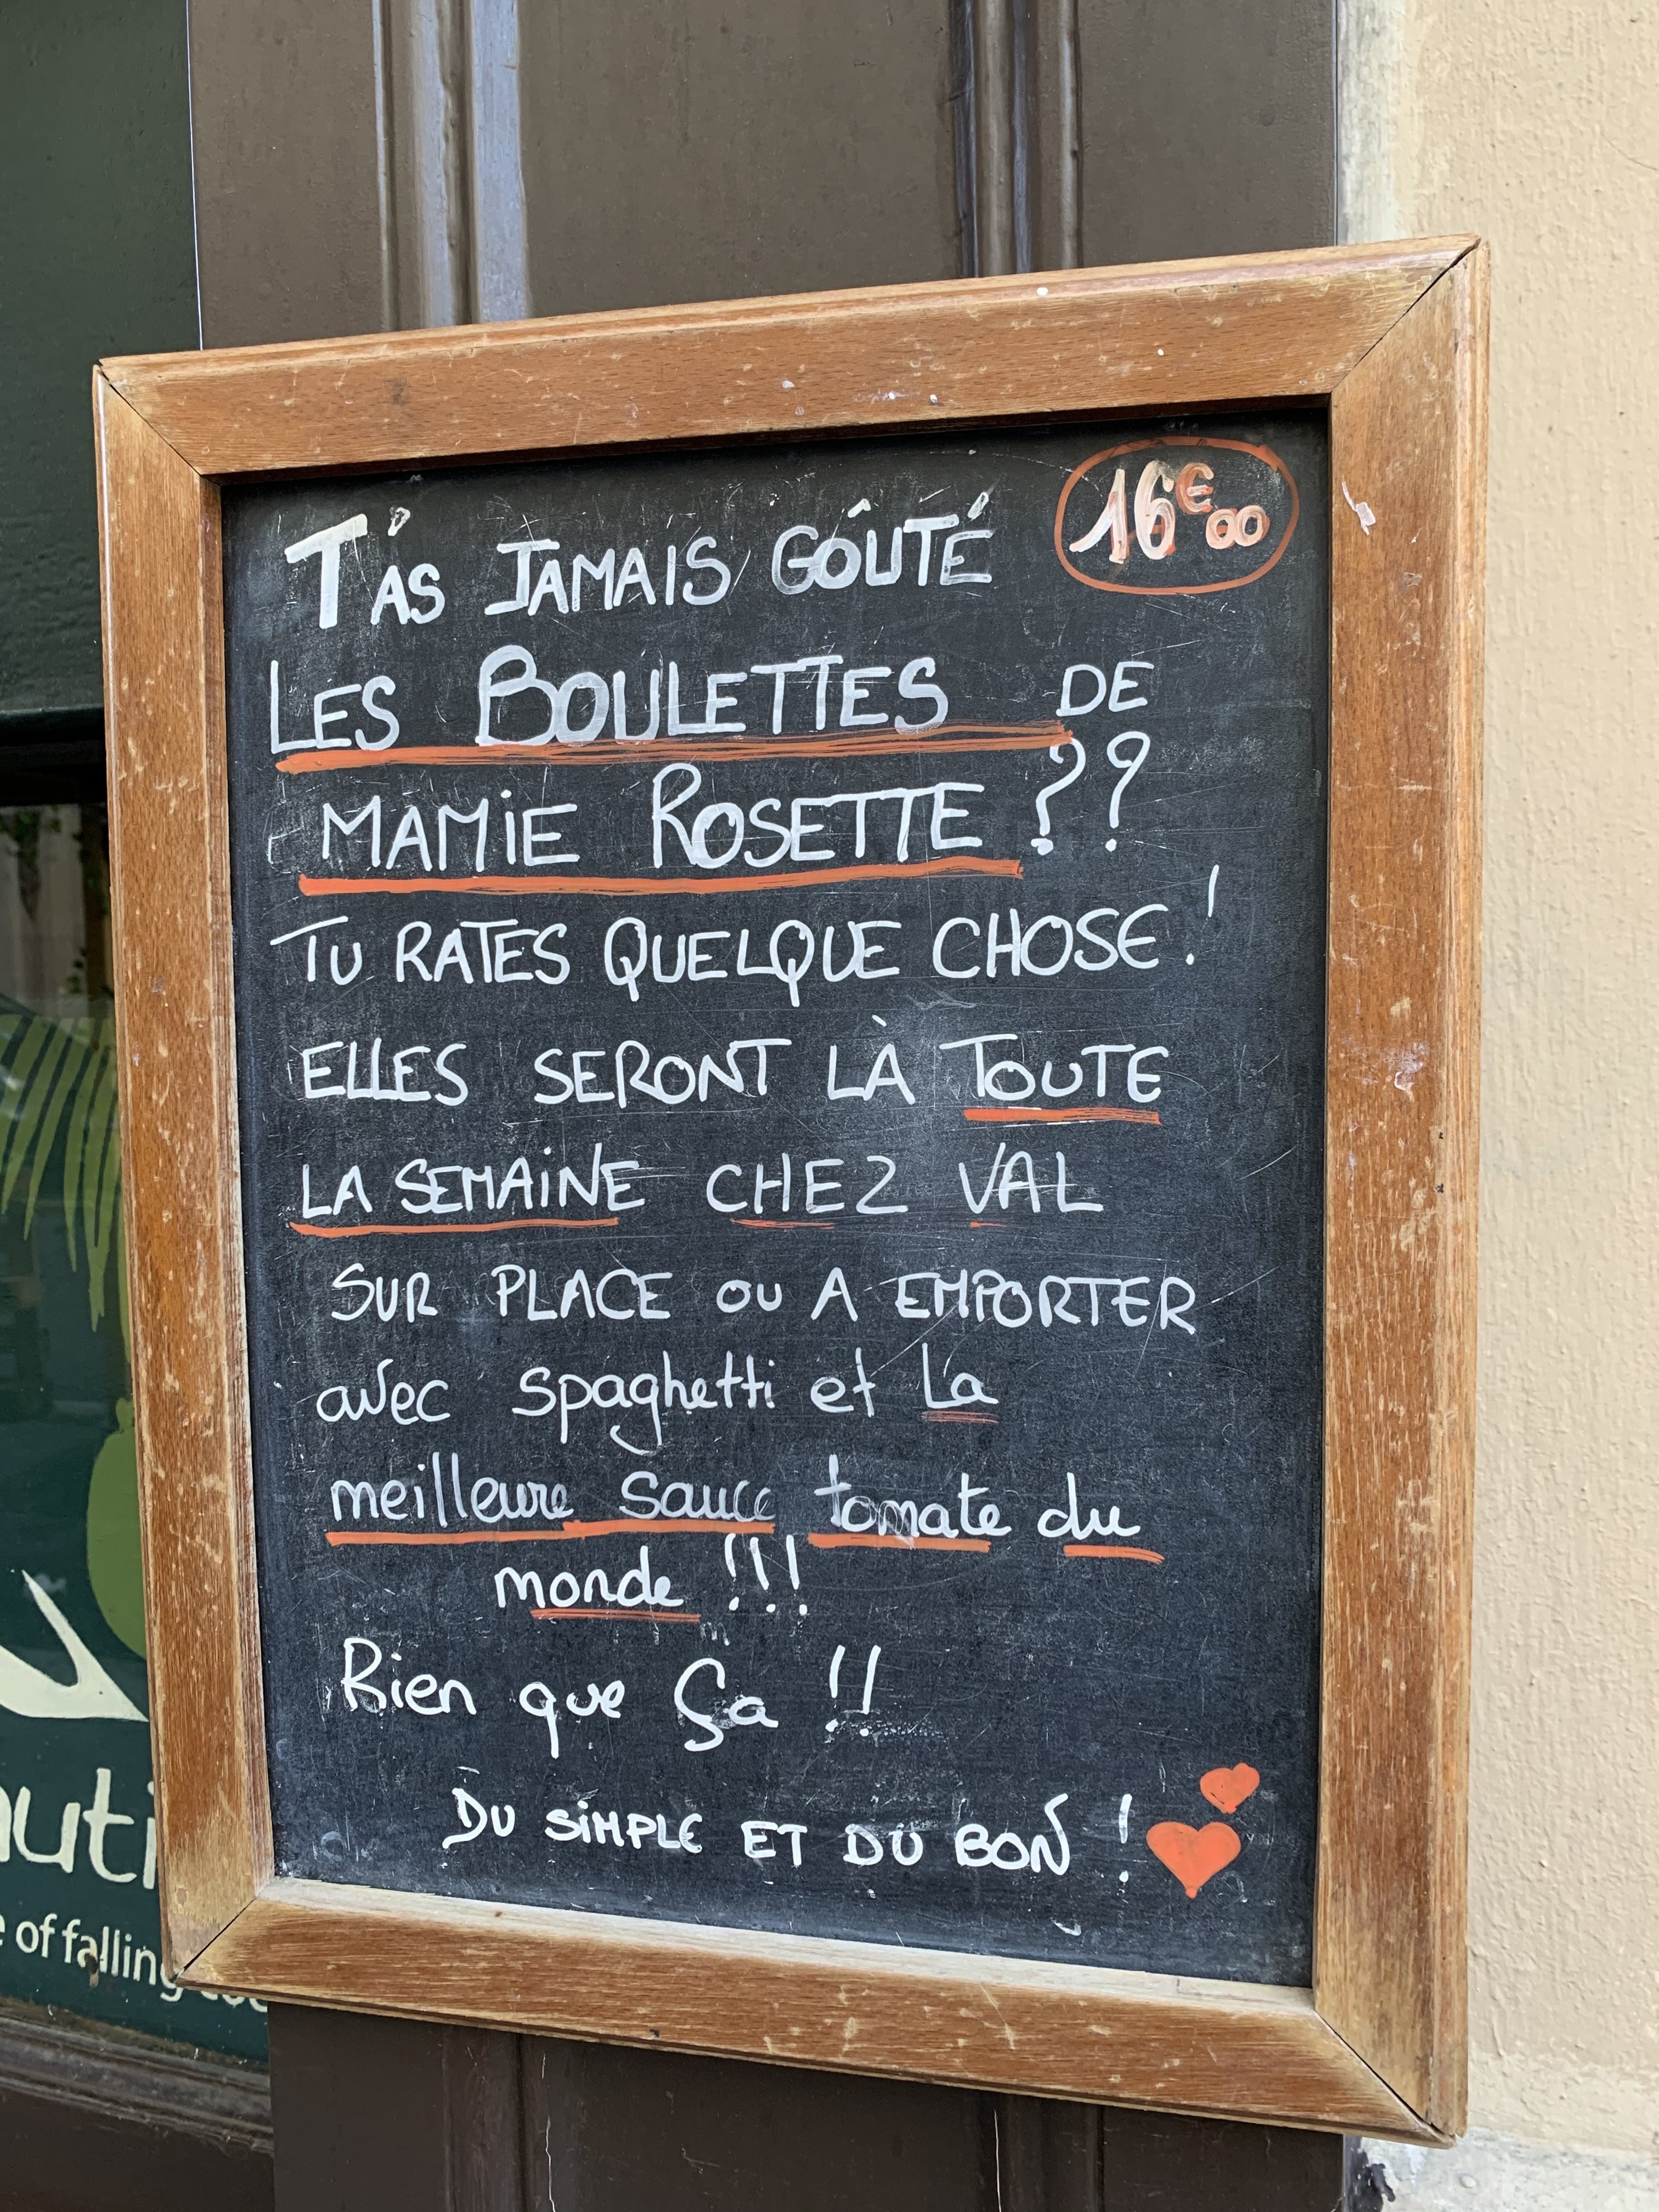 T'AS JAMAIS GOÛTÉ 16€00
LES BOULETTES DE
MAMIE ROSETTE ??
TU RATES QUELQUE CHOSE !
ELLES SERONT LÀ TOUTE
LA SEMAINE CHEZ VAL
SUR PLACE OU A EMPORTER
avec spaghetti et La
meilleure sauce tomate du
monde !!!
Rien que ça !!
DU SIMPLE ET DU BON !
of falling